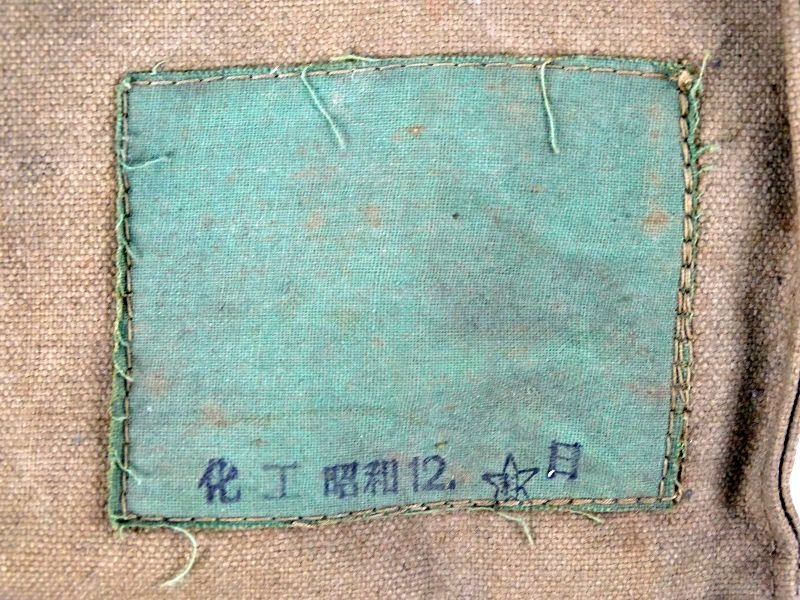 化工 昭和12. ☆ 月